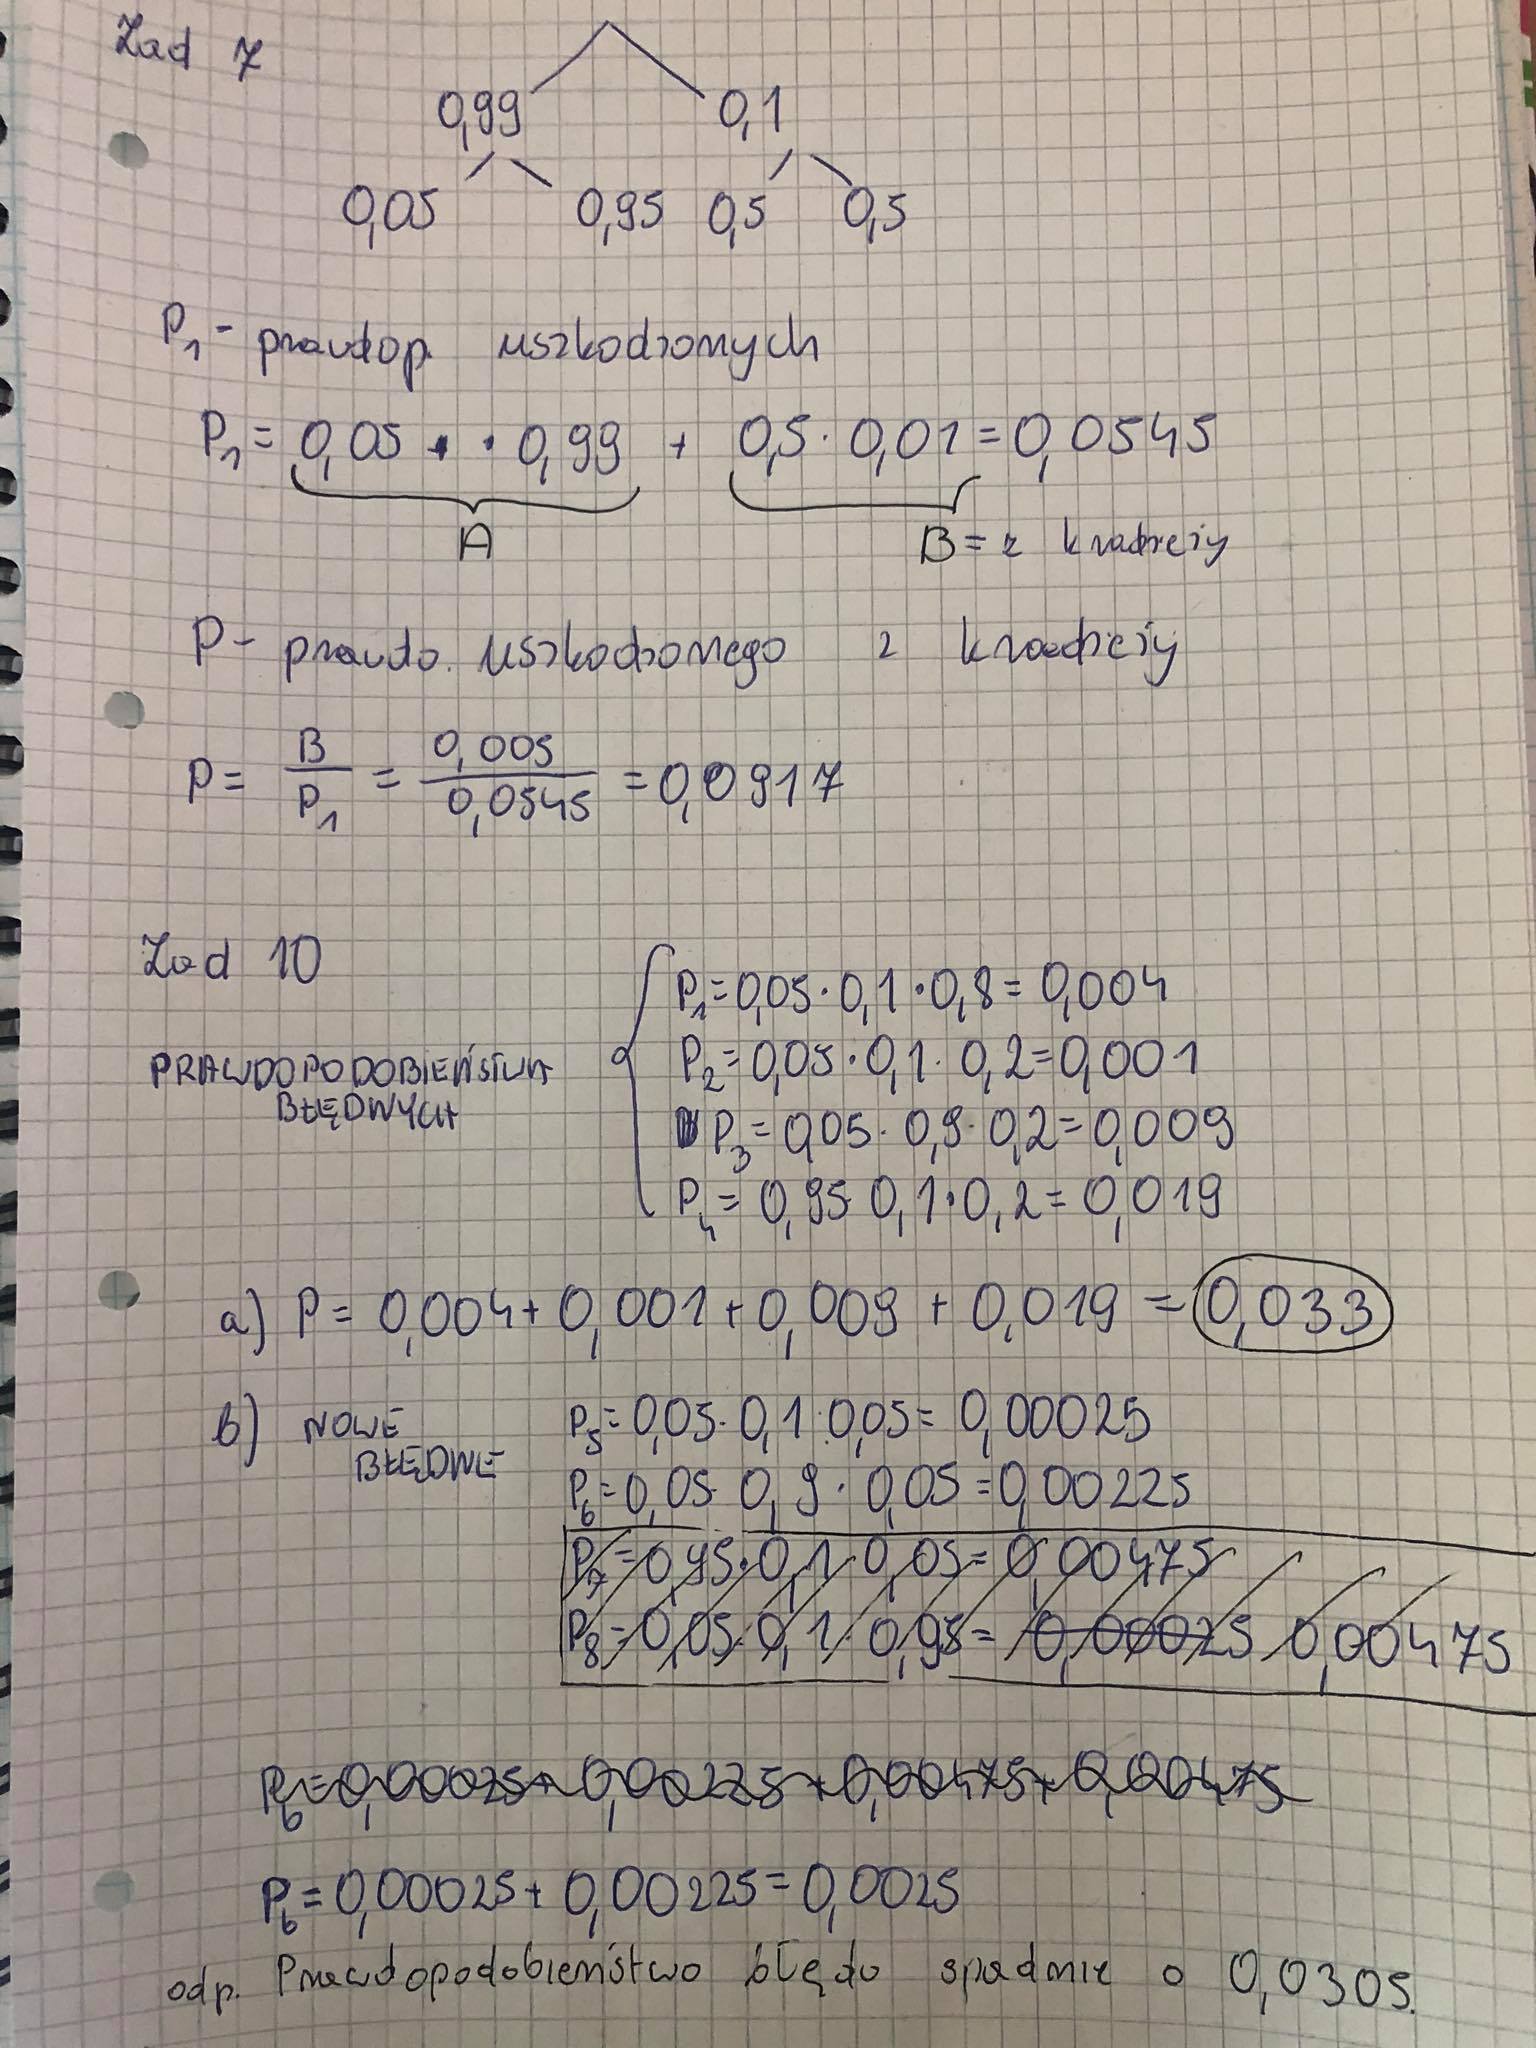 Zad 7
0,99 0,1
0,05 0,95 0,5 0,5
P1 - prawdop. uszkodzonych
P1 = 0,05 · 0,99 + 0,5 · 0,01 = 0,0545
A B = z kradzieży
P - prawdo. uszkodzonego z kradzieży
P = B/P1 = 0,005/0,0545 = 0,0917
Zad 10
P1 = 0,05 · 0,1 · 0,8 = 0,004
P2 = 0,05 · 0,1 · 0,2 = 0,001
PRAWDOPODOBIEŃSTWA
BŁĘDNYCH
P3 = 0,05 · 0,9 · 0,2 = 0,009
P4 = 0,95 0,1 · 0,2 = 0,019
a) P = 0,004 + 0,001 + 0,009 + 0,019 = 0,033
b) NOWE P5 = 0,05 · 0,1 · 0,05 = 0,00025
BŁĘDNE P6 = 0,05 · 0,9 · 0,05 = 0,00225
P7 = 0,95 · 0,1 · 0,05 = 0,00475
P8 = 0,05 · 0,1 · 0,95 = 0,00025 0,00475
Pb = 0,00025 + 0,00225 + 0,00475 + 0,00475
Pb = 0,00025 + 0,00225 = 0,0025
odp. Prawdopodobieństwo błędu spadnie o 0,0305.